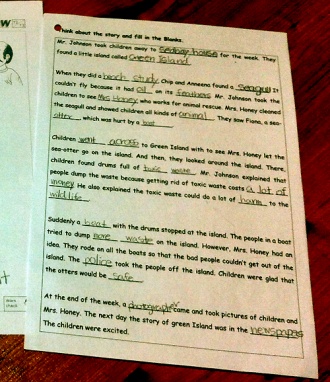 Think about the story and fill in the Blanks.
Mr. Johnson took children away to Sedney house for the week. They
found a little island called Green Island.
When they did a beach study, Chip and Anneena found a seagull. It
couldn't fly because it had oil on its feathers. Mr. Johnson took the
children to see Mrs Honey who works for animal rescue. Mrs. Honey cleaned
the seagull and showed children all kinds of animal. They saw Fiona, a sea-
otter which was hurt by a boat
Children went across to Green Island with to see Mrs. Honey let the
sea-otter go on the island. And then, they looked around the island. There,
children found drums full of toxic waste. Mr. Johnson explained that
people dump the waste because getting rid of toxic waste costs a lot of
money. He also explained the toxic waste could do a lot of harm to the
wild life.
Suddenly a boat with the drums stopped at the island. The people in a boat
tried to dump more waste on the island. However, Mrs. Honey had an
idea. They rode on all the boats so that the bad people couldn't get out of the
island. The police took the people off the island. Children were glad that
the otters would be safe.
At the end of the week, a photographer came and took pictures of children and
Mrs. Honey. The next day the story of green Island was in the newspaper
The children were excited.